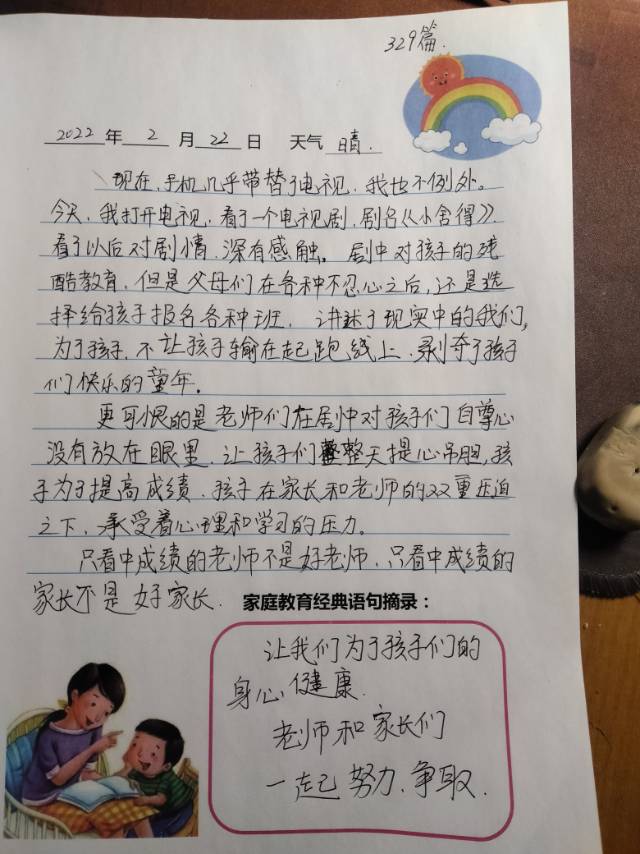 329篇.
2022年 2月22日 天气 晴.
现在,手机几乎带替了电视,我也不例外。
今天,我打开电视,看了一个电视剧,剧名《小舍得》.
看了以后对剧情,深有感触。剧中对孩子的残
酷教育,但是父母们在各种不忍心之后,还是选
择给孩子报名各种班.讲述了现实中的我们,
为了孩子,不让孩子输在起跑线上.剥夺了孩子
们快乐的童年。
更可恨的是老师们在剧中对孩子们自尊心
没有放在眼里.让孩子们整天提心吊胆,孩
子为了提高成绩.孩子在家长和老师的双重压迫
之下,承受着心理和学习的压力。
只看中成绩的老师不是好老师,只看中成绩的
家长不是好家长. 家庭教育经典语句摘录:
让我们为了孩子们的
身心健康.
老师和家长们
一起努力.争取.